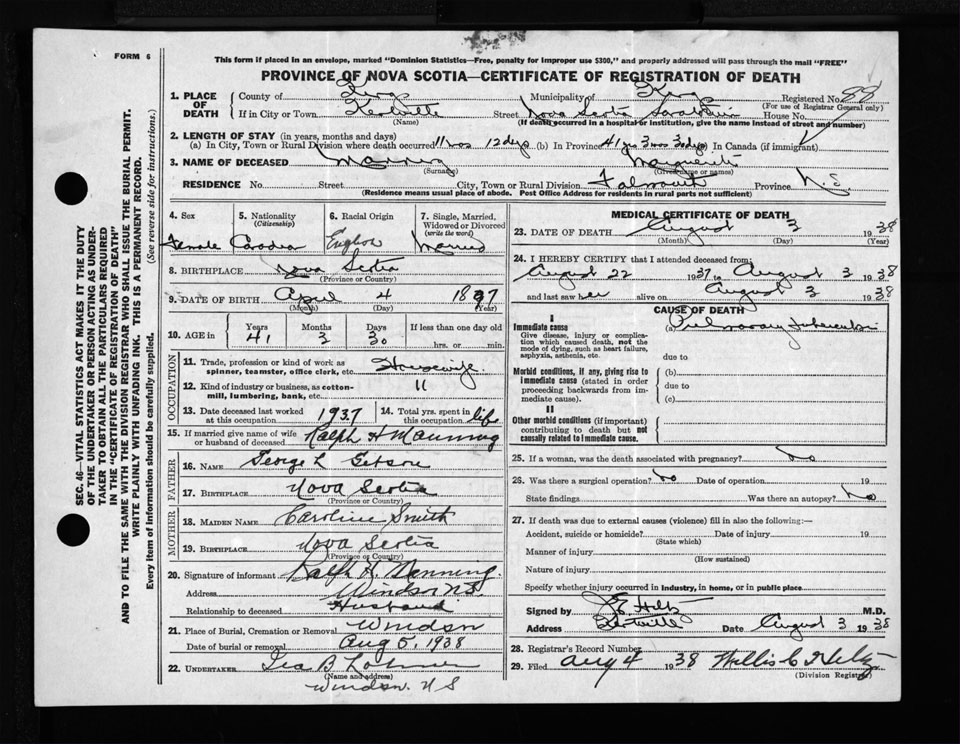 FORM 6
This form if placed in an envelope, marked "Dominion Statistics—Free, penalty for improper use $300," and properly addressed will pass through the mail "FREE"
PROVINCE OF NOVA SCOTIA—CERTIFICATE OF REGISTRATION OF DEATH
1. PLACE OF DEATH
County of Kings Municipality of Kings Registered No. 88
(For use of Registrar General only)
If in City or Town Kentville Street Nova Scotia Sanatorium House No.
(Name) (If death occurred in a hospital or institution, give the name instead of street and number)
2. LENGTH OF STAY (in years, months and days)
(a) In City, Town or Rural Division where death occurred 11 mos 12 days (b) In Province 41 yrs 3 mos 30 days (c) In Canada (if immigrant)
3. NAME OF DECEASED Manning Marguerite
(Surname) (Given name or names)
RESIDENCE No. Street City, Town or Rural Division Falmouth Province N.S.
(Residence means usual place of abode. Post Office Address for residents in rural parts not sufficient)
4. Sex Female
5. Nationality (Citizenship) Canadian
6. Racial Origin English
7. Single, Married, Widowed or Divorced (write the word) Married
8. BIRTHPLACE Nova Scotia
(Province or Country)
9. DATE OF BIRTH April 4 1897
(Month) (Day) (Year)
10. AGE in Years 41 Months 3 Days 30 If less than one day old hrs. or min.
OCCUPATION
11. Trade, profession or kind of work as spinner, teamster, office clerk, etc. Housewife
12. Kind of industry or business, as cotton-mill, lumbering, bank, etc. "
13. Date deceased last worked at this occupation 1937
14. Total yrs. spent in this occupation life
15. If married give name of wife or husband of deceased Ralph H Manning
FATHER
16. NAME George L
17. BIRTHPLACE Nova Scotia
(Province or Country)
MOTHER
18. MAIDEN NAME Caroline Smith
19. BIRTHPLACE Nova Scotia
(Province or Country)
20. Signature of informant Ralph H. Manning
Address Windsor N.S.
Relationship to deceased Husband
21. Place of Burial, Cremation or Removal Windsor
Date of burial or removal Aug 5, 1938
22. UNDERTAKER Geo B
(Name and address)
Windsor. N S
MEDICAL CERTIFICATE OF DEATH
23. DATE OF DEATH August 3 1938
(Month) (Day) (Year)
24. I HEREBY CERTIFY that I attended deceased from:
August 22 1937 to August 3 1938
and last saw her alive on August 3 1938
CAUSE OF DEATH
I
Immediate cause
Give disease, injury or complication which caused death, not the mode of dying, such as heart failure, asphyxia, asthenia, etc.
(a) Pulmonary Tuberculosis
due to
Morbid conditions, if any, giving rise to immediate cause (stated in order proceeding backwards from immediate cause).
(b)
due to
(c)
II
Other morbid conditions (if important) contributing to death but not causally related to immediate cause.
25. If a woman, was the death associated with pregnancy? No
26. Was there a surgical operation? No Date of operation 19
State findings Was there an autopsy? No
27. If death was due to external causes (violence) fill in also the following:—
Accident, suicide or homicide? Date of injury 19
(State which)
Manner of injury
(How sustained)
Nature of injury
Specify whether injury occurred in industry, in home, or in public place
Signed by J E Hiltz M.D.
Address Kentville Date August 3 1938
28. Registrar's Record Number
29. Filed Aug 4 1938 Willis C
(Division Registrar)
SEC. 46—VITAL STATISTICS ACT MAKES IT THE DUTY
OF THE UNDERTAKER OR PERSON ACTING AS UNDER-
TAKER TO OBTAIN ALL THE PARTICULARS REQUIRED
IN THE "CERTIFICATE OF REGISTRATION OF DEATH"
AND TO FILE THE SAME WITH THE DIVISION REGISTRAR WHO SHALL ISSUE THE BURIAL PERMIT.
WRITE PLAINLY WITH UNFADING INK. THIS IS A PERMANENT RECORD.
Every item of information should be carefully supplied. (See reverse side for instructions.)